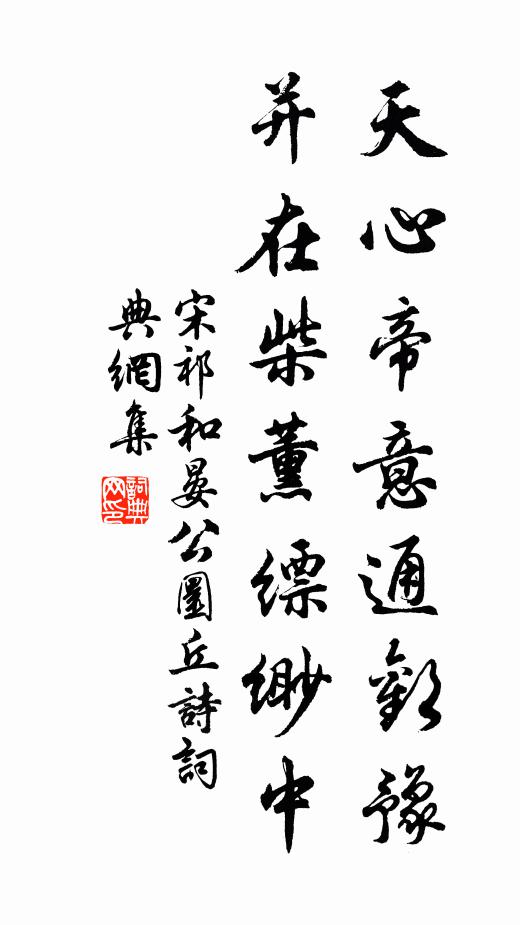 天心帝意通歡豫
并在柴薰縹緲中
宋祁和晏公圜丘詩詞
典網集
詞典
网印